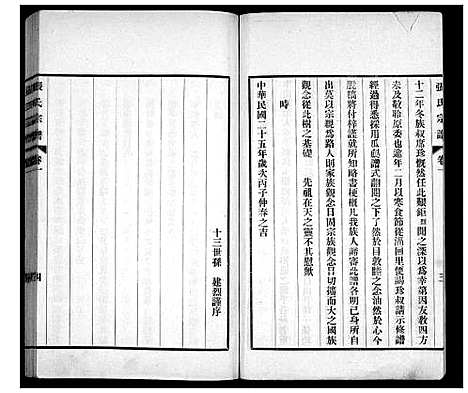 張氏宗譜 卷一 三
十二年冬族叔席珍慨然任此艱鉅烈聞之深以爲幸第因友教四方
未及敬聆原委也逾年二月以寒食節從滿回里便謁珍叔請示修譜
經過得悉採用瓜瓞譜式翻閱之下了然於目敦睦之念油然於心今
脫稿將付梓謹就所知略書梗概凡我族人諦審此譜各明己身所自
出莫以宗親爲路人則家族觀念日固宗族觀念日切擴而大之國族
觀念從此樹之基礎 先祖在天之靈不其同慰歟
時
中華民國二十五年歲次丙子仲春之吉
十三世孫 建烈謹序
張氏宗譜 卷一 四